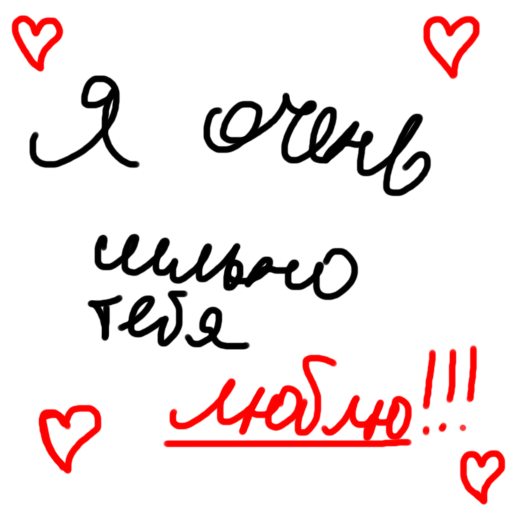 Я очень
сильно
тебя
люблю!!!